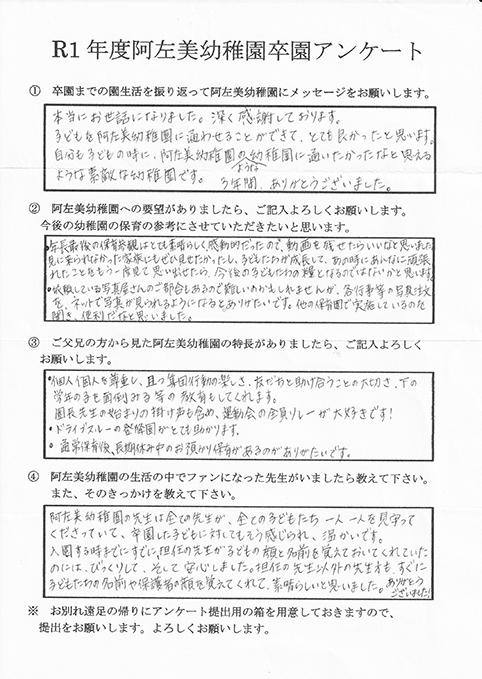 R1 年度阿左美幼稚園卒園アンケート
① 卒園までの園生活を振り返って阿左美幼稚園にメッセージをお願いします。
本当にお世話になりました。深く感謝しております。
子どもを阿左美幼稚園に通わせることができて、とても良かったと思います。
自分も子どもの時に、阿左美幼稚園のような幼稚園に通いたかったなと思える
ような素敵な幼稚園です。 3年間、ありがとうございました。
② 阿左美幼稚園への要望がありましたら、ご記入よろしくお願いします。
今後の園の保育の参考にさせていただきたいと思います。
・年長最後の保育参観はとても素晴らしく感動的だったので、動画を残せたらいいなと思いました。
見に来られなかった家族にもぜひ見せたかったし、子どもたちが成長して、あの時にあんなに頑張
れたことをもう一度見て思い出せたら、今後の子どもたちの糧となるのではないかと思います。
・依頼している写真屋さんのご都合もあるので難しいのかもしれませんが、各行事等の写真注文
を、ネットで写真が見られるようになるとありがたいです。他の保育園で実施しているのを
聞き、便利だなと思いました。
③ ご父兄の方から見た阿左美幼稚園の特長がありましたら、ご記入よろしく
お願いします。
・個人個人を尊重し、且つ集団行動の楽しさ、友だちと助け合うことの大切さ、下の
学年の子を面倒みる等の教育もしてくれます。
園長先生の始まりの掛け声も含め、運動会の全員リレーが大好きです!
・ドライブスルーの登降園がとても助かります。
・通常保育後、長期休み中のお預かり保育があるのがありがたいです。
④ 阿左美幼稚園の生活の中でファンになった先生がいましたら教えて下さい。
また、そのきっかけを教えて下さい。
阿左美幼稚園の先生は全ての先生が、全ての子どもたち一人一人を見守って
くださっていて、卒園した子どもに対してもそう感じられ、温かいです。
入園する時までにすでに、担任の先生が子どもの顔と名前を覚えておいてくれていた
のには、びっくりして、そして安心しました。担任の先生以外の先生方も、すぐに
子どもたちの名前や保護者の顔を覚えてくれて、素晴らしいと思いました。ありがとう
ございました!
※ お別れ遠足の帰りにアンケート提出用の箱を用意しておきますので、
提出をお願いします。よろしくお願いします。